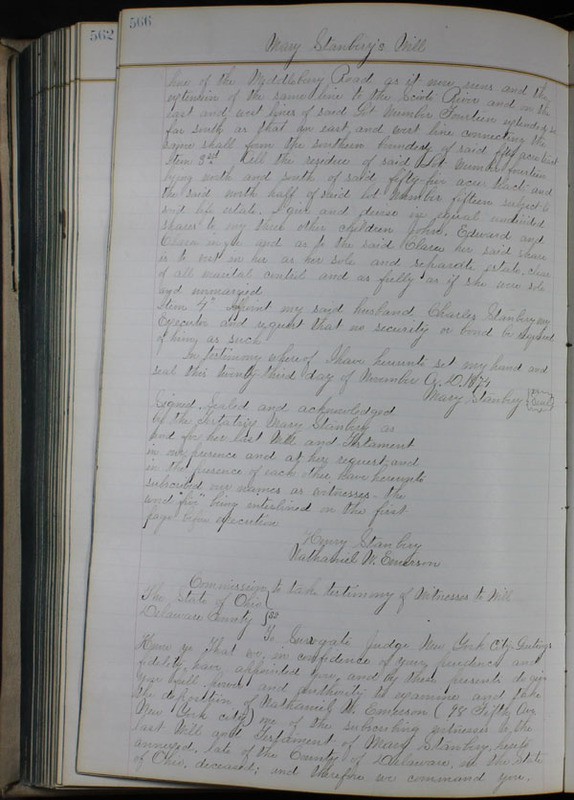 562
566
Mary Stanbery's Will
line of the Middlebury Road as it now runs and the
extension of the same line to the Scioto River and on the
east and west lines of said Lot Number Fourteen extended so
far south as that an east and west line connecting the
same shall form the southern boundary of said fifty five acre tract
Item 3rd All the residue of said Lot Number fourteen
lying north and south of said fifty-five acre tract and
the said north half of said lot Number fifteen subject to
said life estate, I give and devise in equal undivided
shares to my three other children John, Edward and
Clara in fee and as to the said Clara her said share
is to vest in her as her sole and separate estate, clear
of all marital control and as fully as if she were sole
and unmarried
Item 4th I appoint my said husband, Charles Stanbery my
Executor and request that no security or bond be required
of him as such
In testimony whereof I have hereunto set my hand and
seal this twenty-third day of November A.D. 1874
Mary Stanbery {Seal}
Signed Sealed and acknowledged
by the Testatrix Mary Stanbery as
and for her last Will and Testament
in our presence and at her request and
in the presence of each other have hereunto
subscribed our names as witnesses - the
word "five" being interlined on the first
page before execution
Henry Stanbery
Nathaniel W. Emerson
Commission to take testimony of Witnesses to Will
The State of Ohio
Delaware County } ss
To Surrogate Judge New York City, Greeting:
Know ye That we, in confidence of your prudence and
fidelity, have appointed you, and by these presents do give
you full power and authority to examine and take
the deposition of Nathaniel W. Emerson (98 Fifth Av.
New York city) one of the subscribing witnesses to the
last Will and Testament of Mary Stanbery, hereto
annexed, late of the County of Delaware, in the State
of Ohio, deceased; and therefore we command you,